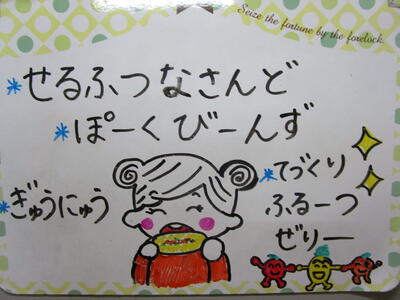 Seize the fortune by the forelock.
*せるふつなさんど
*ぽーくびーんず
*ぎゅうにゅう
*てづくり
ふるーつ
ぜりー